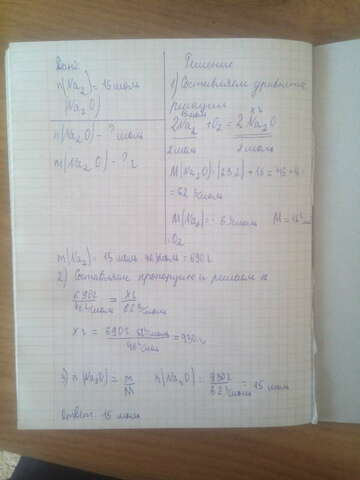 Дано
n(Na₂) = 15 моль
(Na₂O)
n(Na₂O) - ? моль
m(Na₂O) - ? г
Решение
1) Составляем уравнение
реакции
15 моль X г
2Na₂ + O₂ = 2 Na₂O
2 моль 2 моль
M(Na₂O) = (23·2) + 16 = 46 + 16 =
= 62 г/моль
M(Na₂) = 46 моль
O₂
m(Na₂) = 15 моль · 46 г/моль = 690 г
2) Составляем пропорцию и решаем
690 г / 46 г/моль = X г / 62 г/моль
X г = 690 г · 62 г/моль / 46 г/моль = 930 г
3) n(Na₂O) = m / M n(Na₂O) = 930 г / 62 г/моль = 15 моль
Ответ: 15 моль